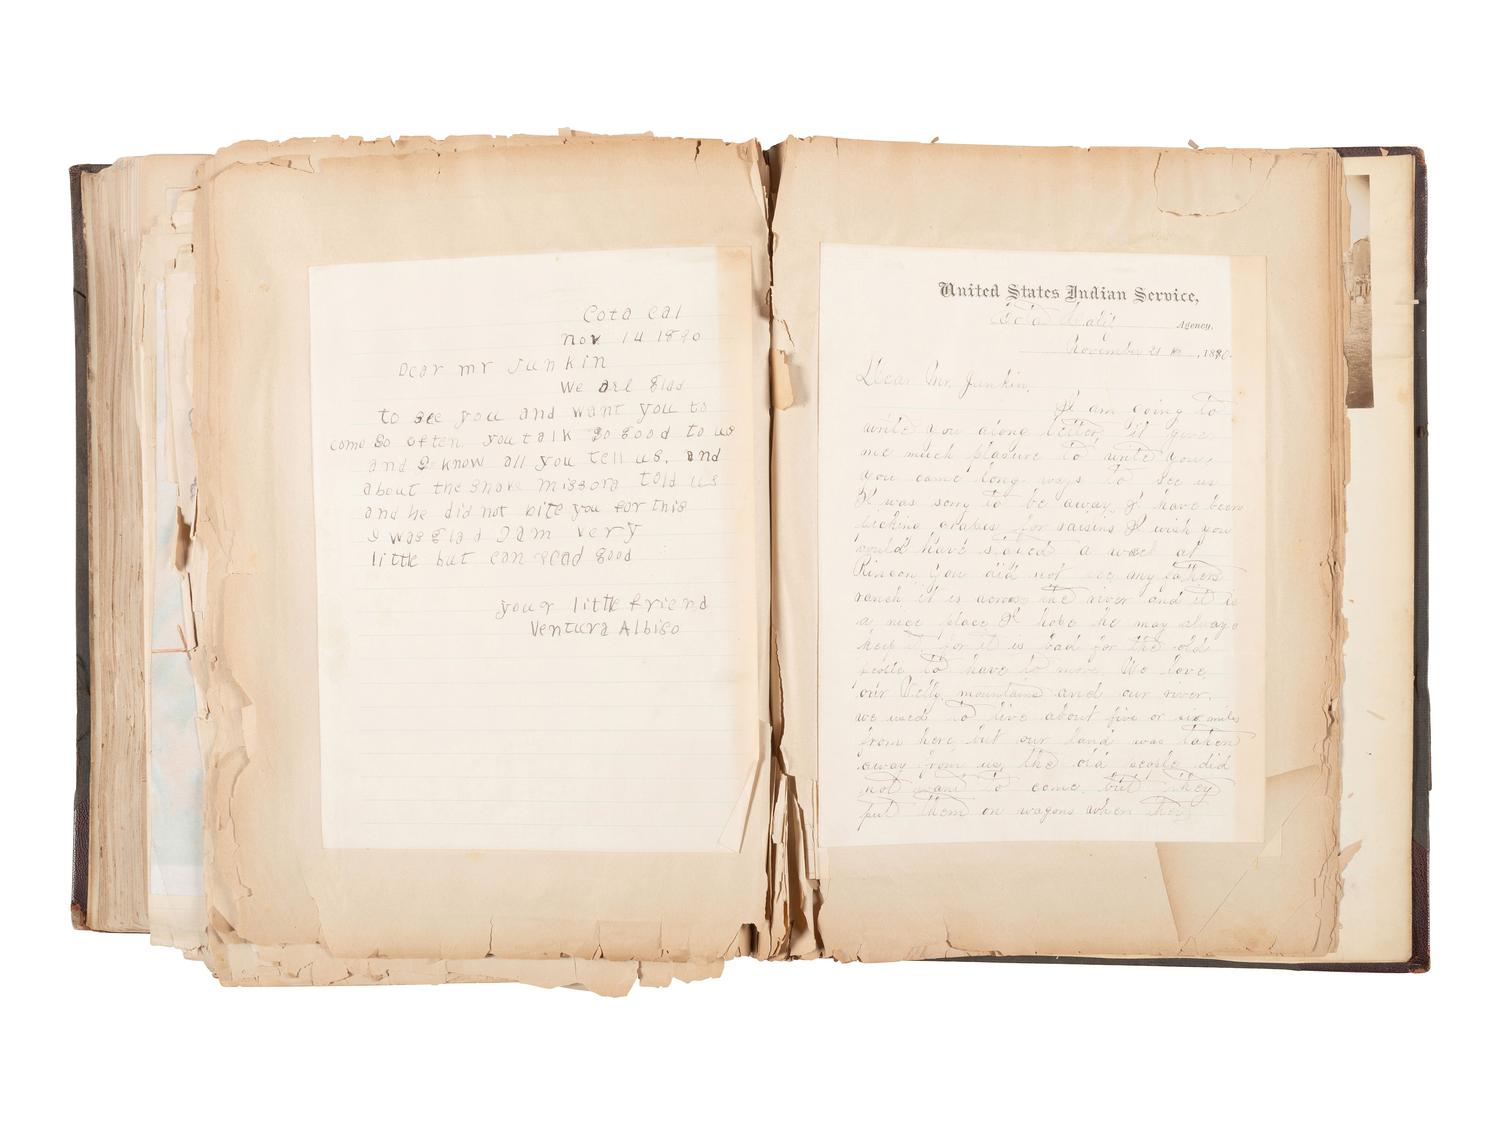 Cota cal
nov 14 1890
Dear mr Junkin
We are glad
to see you and want you to
come so often. you talk so good to us
and I know all you tell us. and
about the snake missora told us
and he did not bite you for this
I was glad I am very
little but can read good
your little friend
Ventura Albiso
United States Indian Service,
Agency,
November 21 , 1890.
Dear Mr. Junkin
I am going to
write you along letter it gives
me much plasure to write you,
you came long ways to see us
I was sorry to be away I have been
picking grabes for raisins I wish you
could have staied a week at
Rincon you did not see my fathers
ranch it is across the river and it is
a nice place I hobe he may always
keep it for it is bad for the old
people to have to move We love
our mountains and our river.
we used to live about five or six miles
from here but our land was taken
away from us, the old people did
not want to come but they
put them on wagons when they